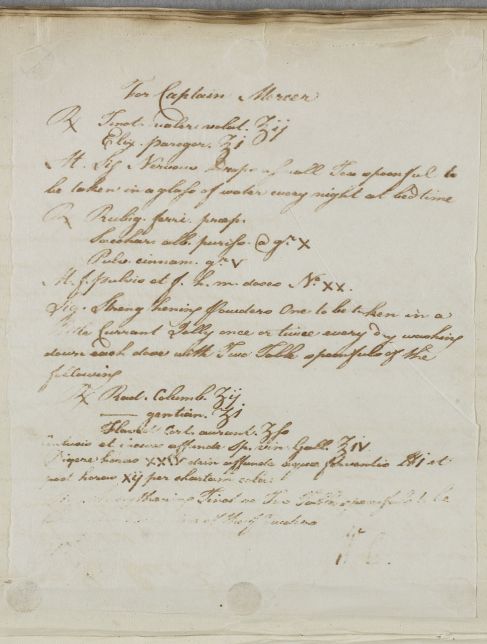 For Captain Mercer
℞ Tinct. valer. volat. ʒij
Elix. paregor. ʒi
M. Sig. Nervous Drops a small Tea spoonful to
be taken in a glass of water every night at bedtime
℞ Rubig. ferri. praep.
Sacchari alb. puriss. @ gr. X
Pulv. cinnam. gr. V
M. f. pulvis et f. h. m. doses No. XX.
Sig. Strengthening Powders One to be taken in a
Currant Jelly once or twice every day washing
down each dose with Two Table spoonfuls of the
following
℞ Rad. Columb. ʒij
—— gentian. ʒi
Flaved. Cort. aurant. ʒss
et affunde Sp. vin. Gall. ℥IV.
Digere horas XXIV dein affunde aquae ferventis ℔i et
post horas XIJ per chartam cola.
Tinct. Two Table spoonfuls to be